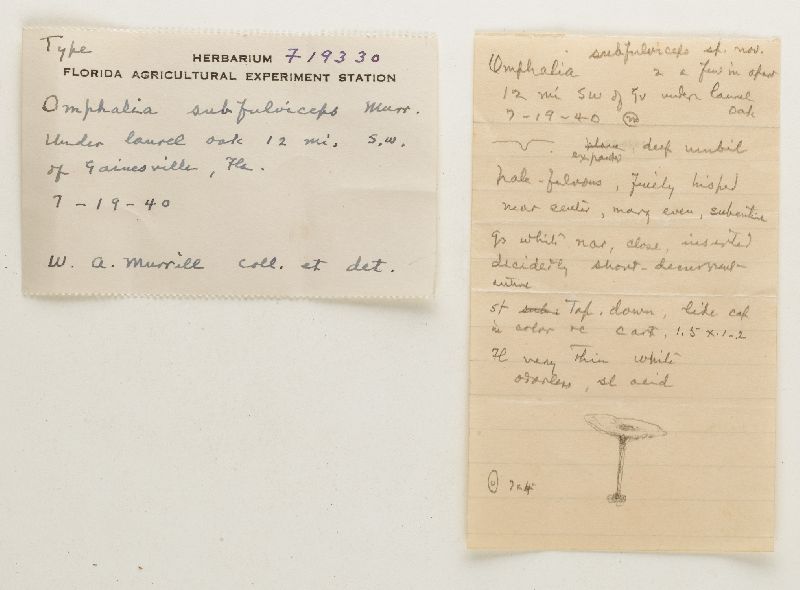 Type
HERBARIUM F19330
FLORIDA AGRICULTURAL EXPERIMENT STATION
Omphalia subfulviceps Murr.
Under laurel oak 12 mi. S.W.
of Gainesville, Fla.
7-19-40
W. A. Murrill coll. et det.
subfulviceps sp. nov.
Omphalia 2 a few in apart
12 mi SW of Gv under laurel
oak
7-19-40
expanded, deep umbil
pale-fulvous, finely hispid
near center, marg even, subentire
gs white nar, close, inserted
decidedly short-decurrent
entire
st Tap. down, like cap
in color cart. 1.5 x .1-.2
Fl very thin white
odorless, sl acid
7 x 4